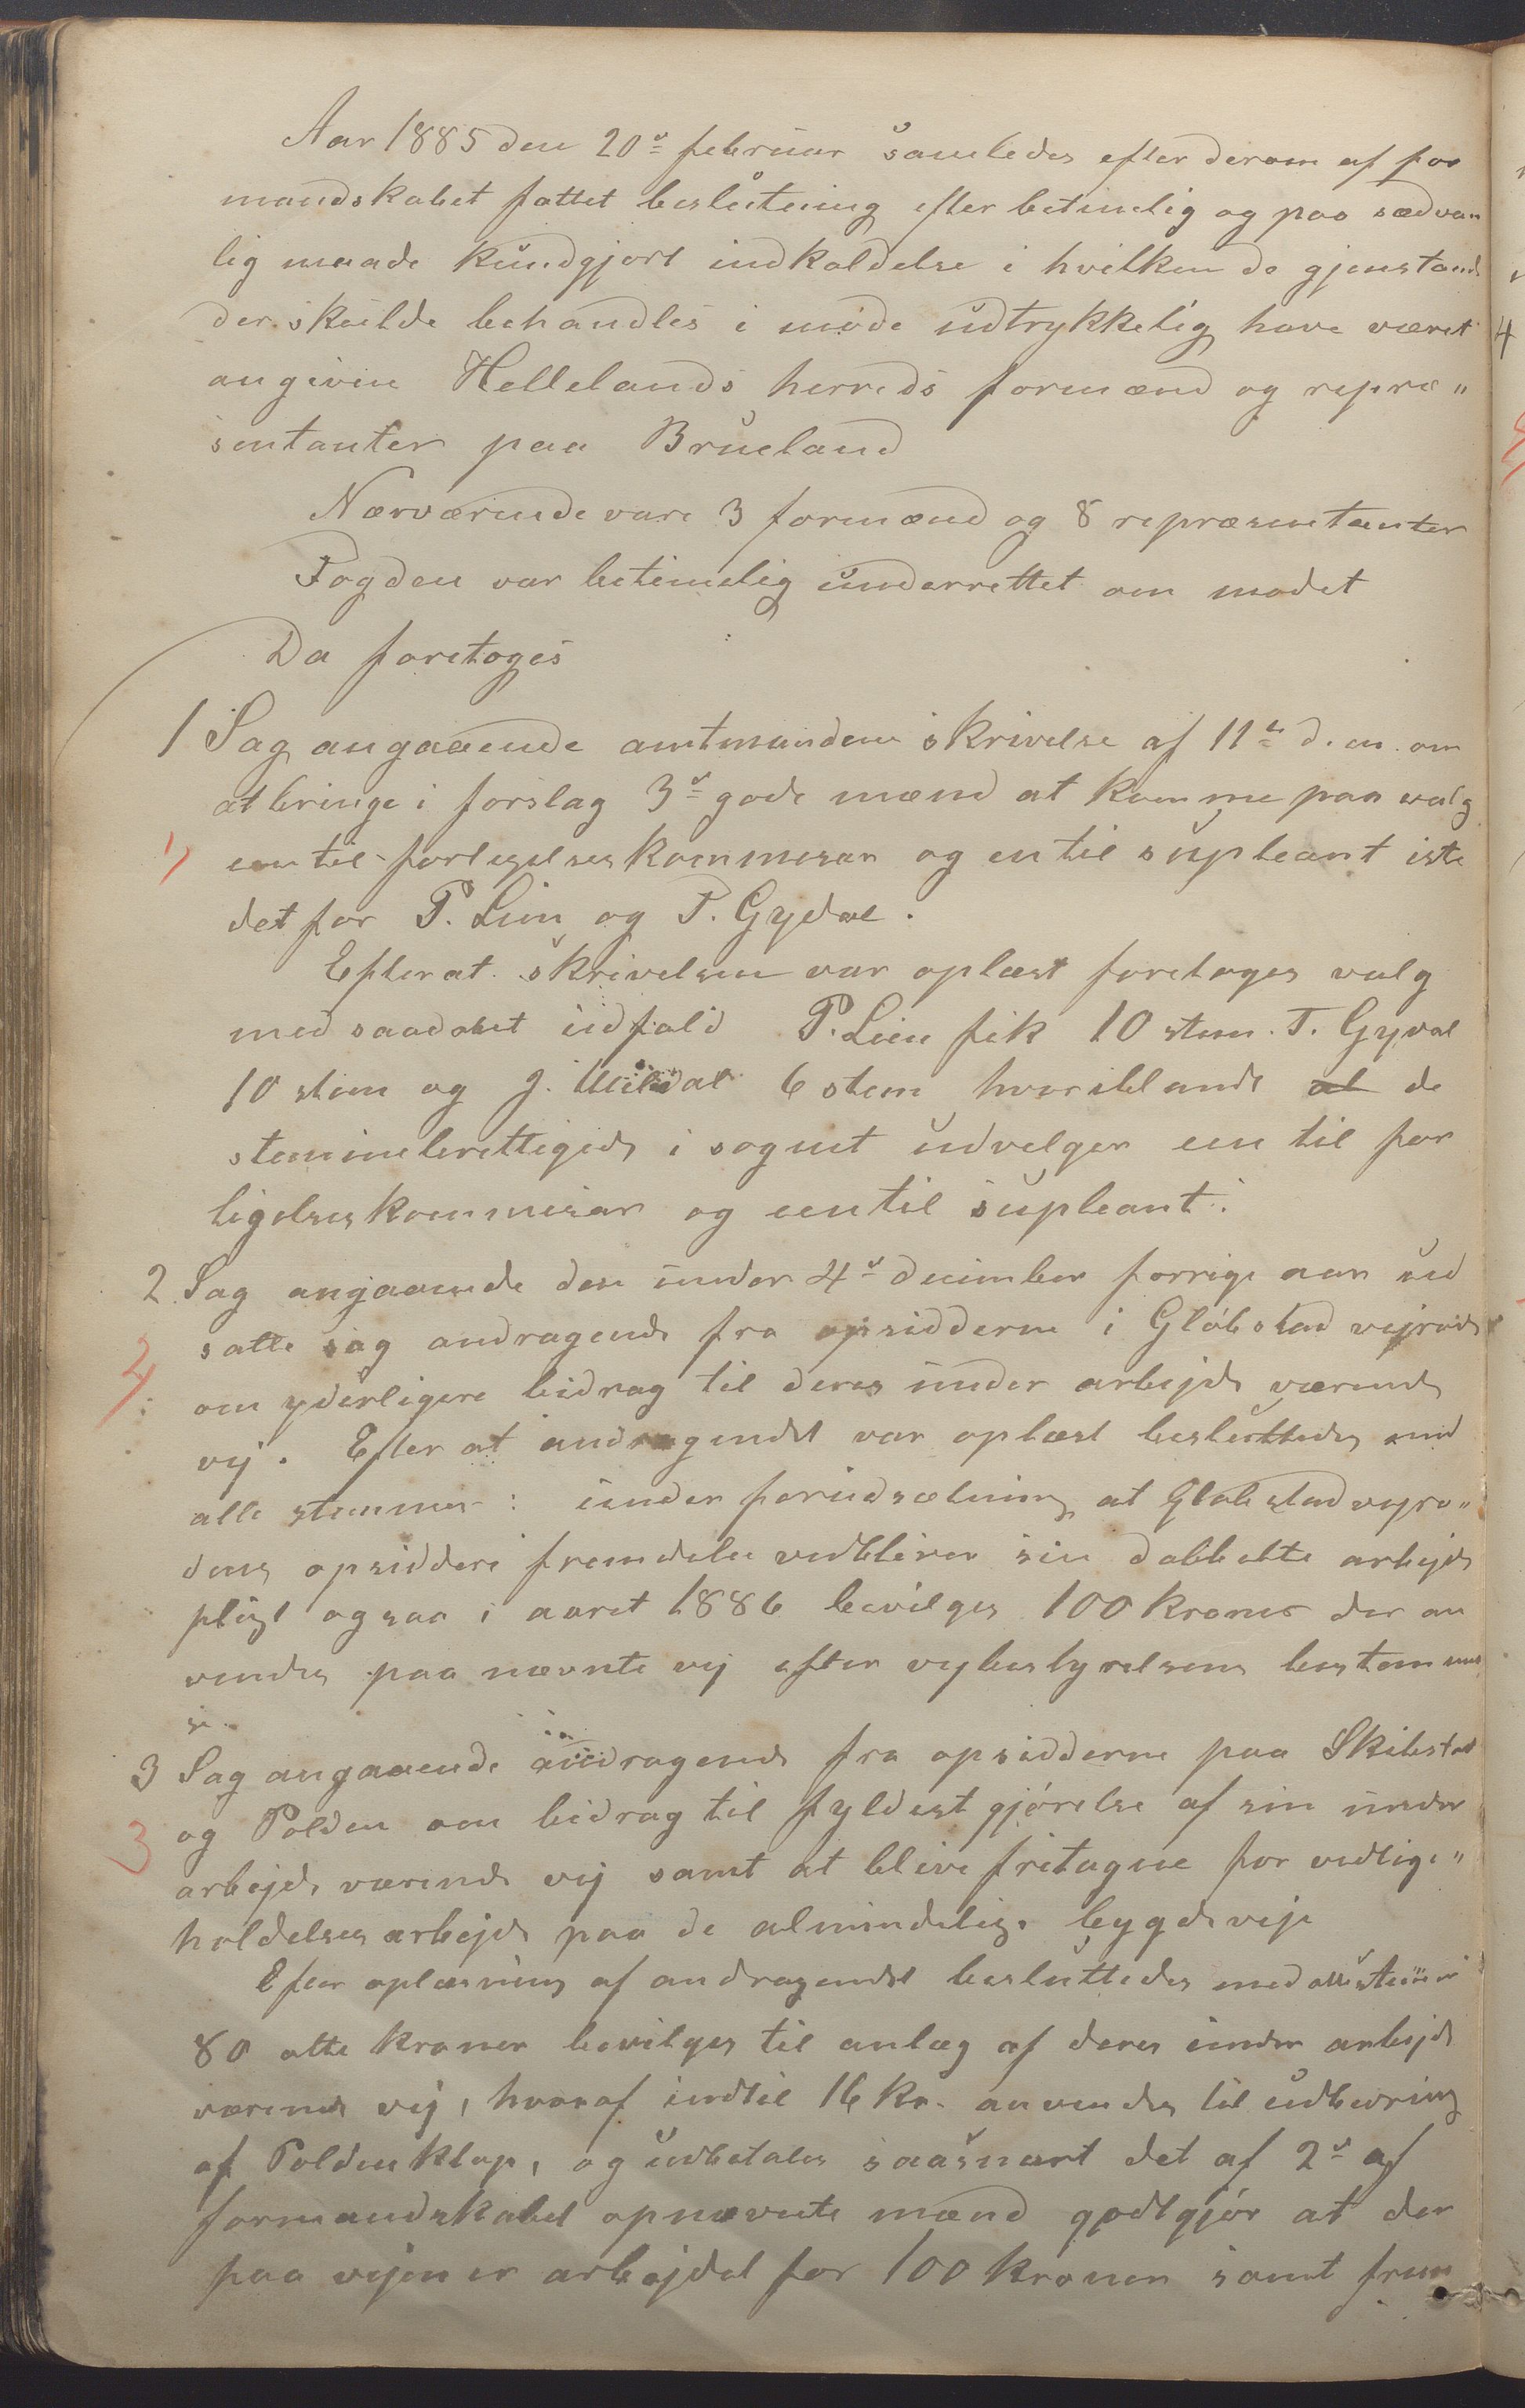 Aar 1885 den 20de februar samledes efter derom af for
mandskabet fattet beslutning efter betimelig og paa sædvan
lig maade kundgjort indkaldelse i hvilken de gjenstand
der skulde behandles i møde udtrykkelig have været
angivne Hellelands herreds formænd og repræ„
sentanter paa Brueland
Nærværende vare 3 formænd og 8 repræsentanter
Fogden var betimelig underrettet om mødet
Da foretoges
1 Sag angaaende amtmandens skrivelse af 11te d. m. om
at bringe i forslag 3de gode mænd at komme paa valg
1) een til forligelseskommisær og en til supleant iste
det for P. Lien og P. Gydal.
Efter at skrivelsen var oplæst foretoges valg
med saadant udfald P. Lien fik 10 stem. T. Gyval
10 stem og J. 6 stem hvoriblandt al de
stemmeberettigede i sognet udvelger een til for
ligelseskommisær og een til supleant.
2 Sag angaaende den under 4de december forrige aar ud
satte sag andragende fra opsidderne i Gløbstad vejrode
2 om yderligere bidrag til deres under arbejde værende
vej. Efter at andragendet var oplæst besluttedes med
alle stemmer: under forudsætning at Gløbstad vejro„
dens opsiddere fremdeles vedbliver sin dobbelte arbejds
pligt ogsaa i aaret 1886 bevilges 100 kroner der an
vendes paa nævnte vej efter vejbestyrelsens bestemmel
se.
3 Sag angaaende andragende fra opsidderne paa Skibstad
3 og Polden om bidrag til fyldestgjørelse af sin under
arbejde værende vej samt at blive fritagne for vedlige„
holdelses arbejde paa de almindelige bygdeveje
Efter oplæsning af andragendet besluttedes med alle stemmer
80 otte kroner bevilges til anlæg af deres under arbejde
værende vej, hvoraf indtil 16 kr. anvendes til udbedring
af Polden klop, og udbetales saasnart det af 2de af
formandskabet opnævnte mænd godtgjør at der
paa vejen er arbejdet for 100 kroner samt frem